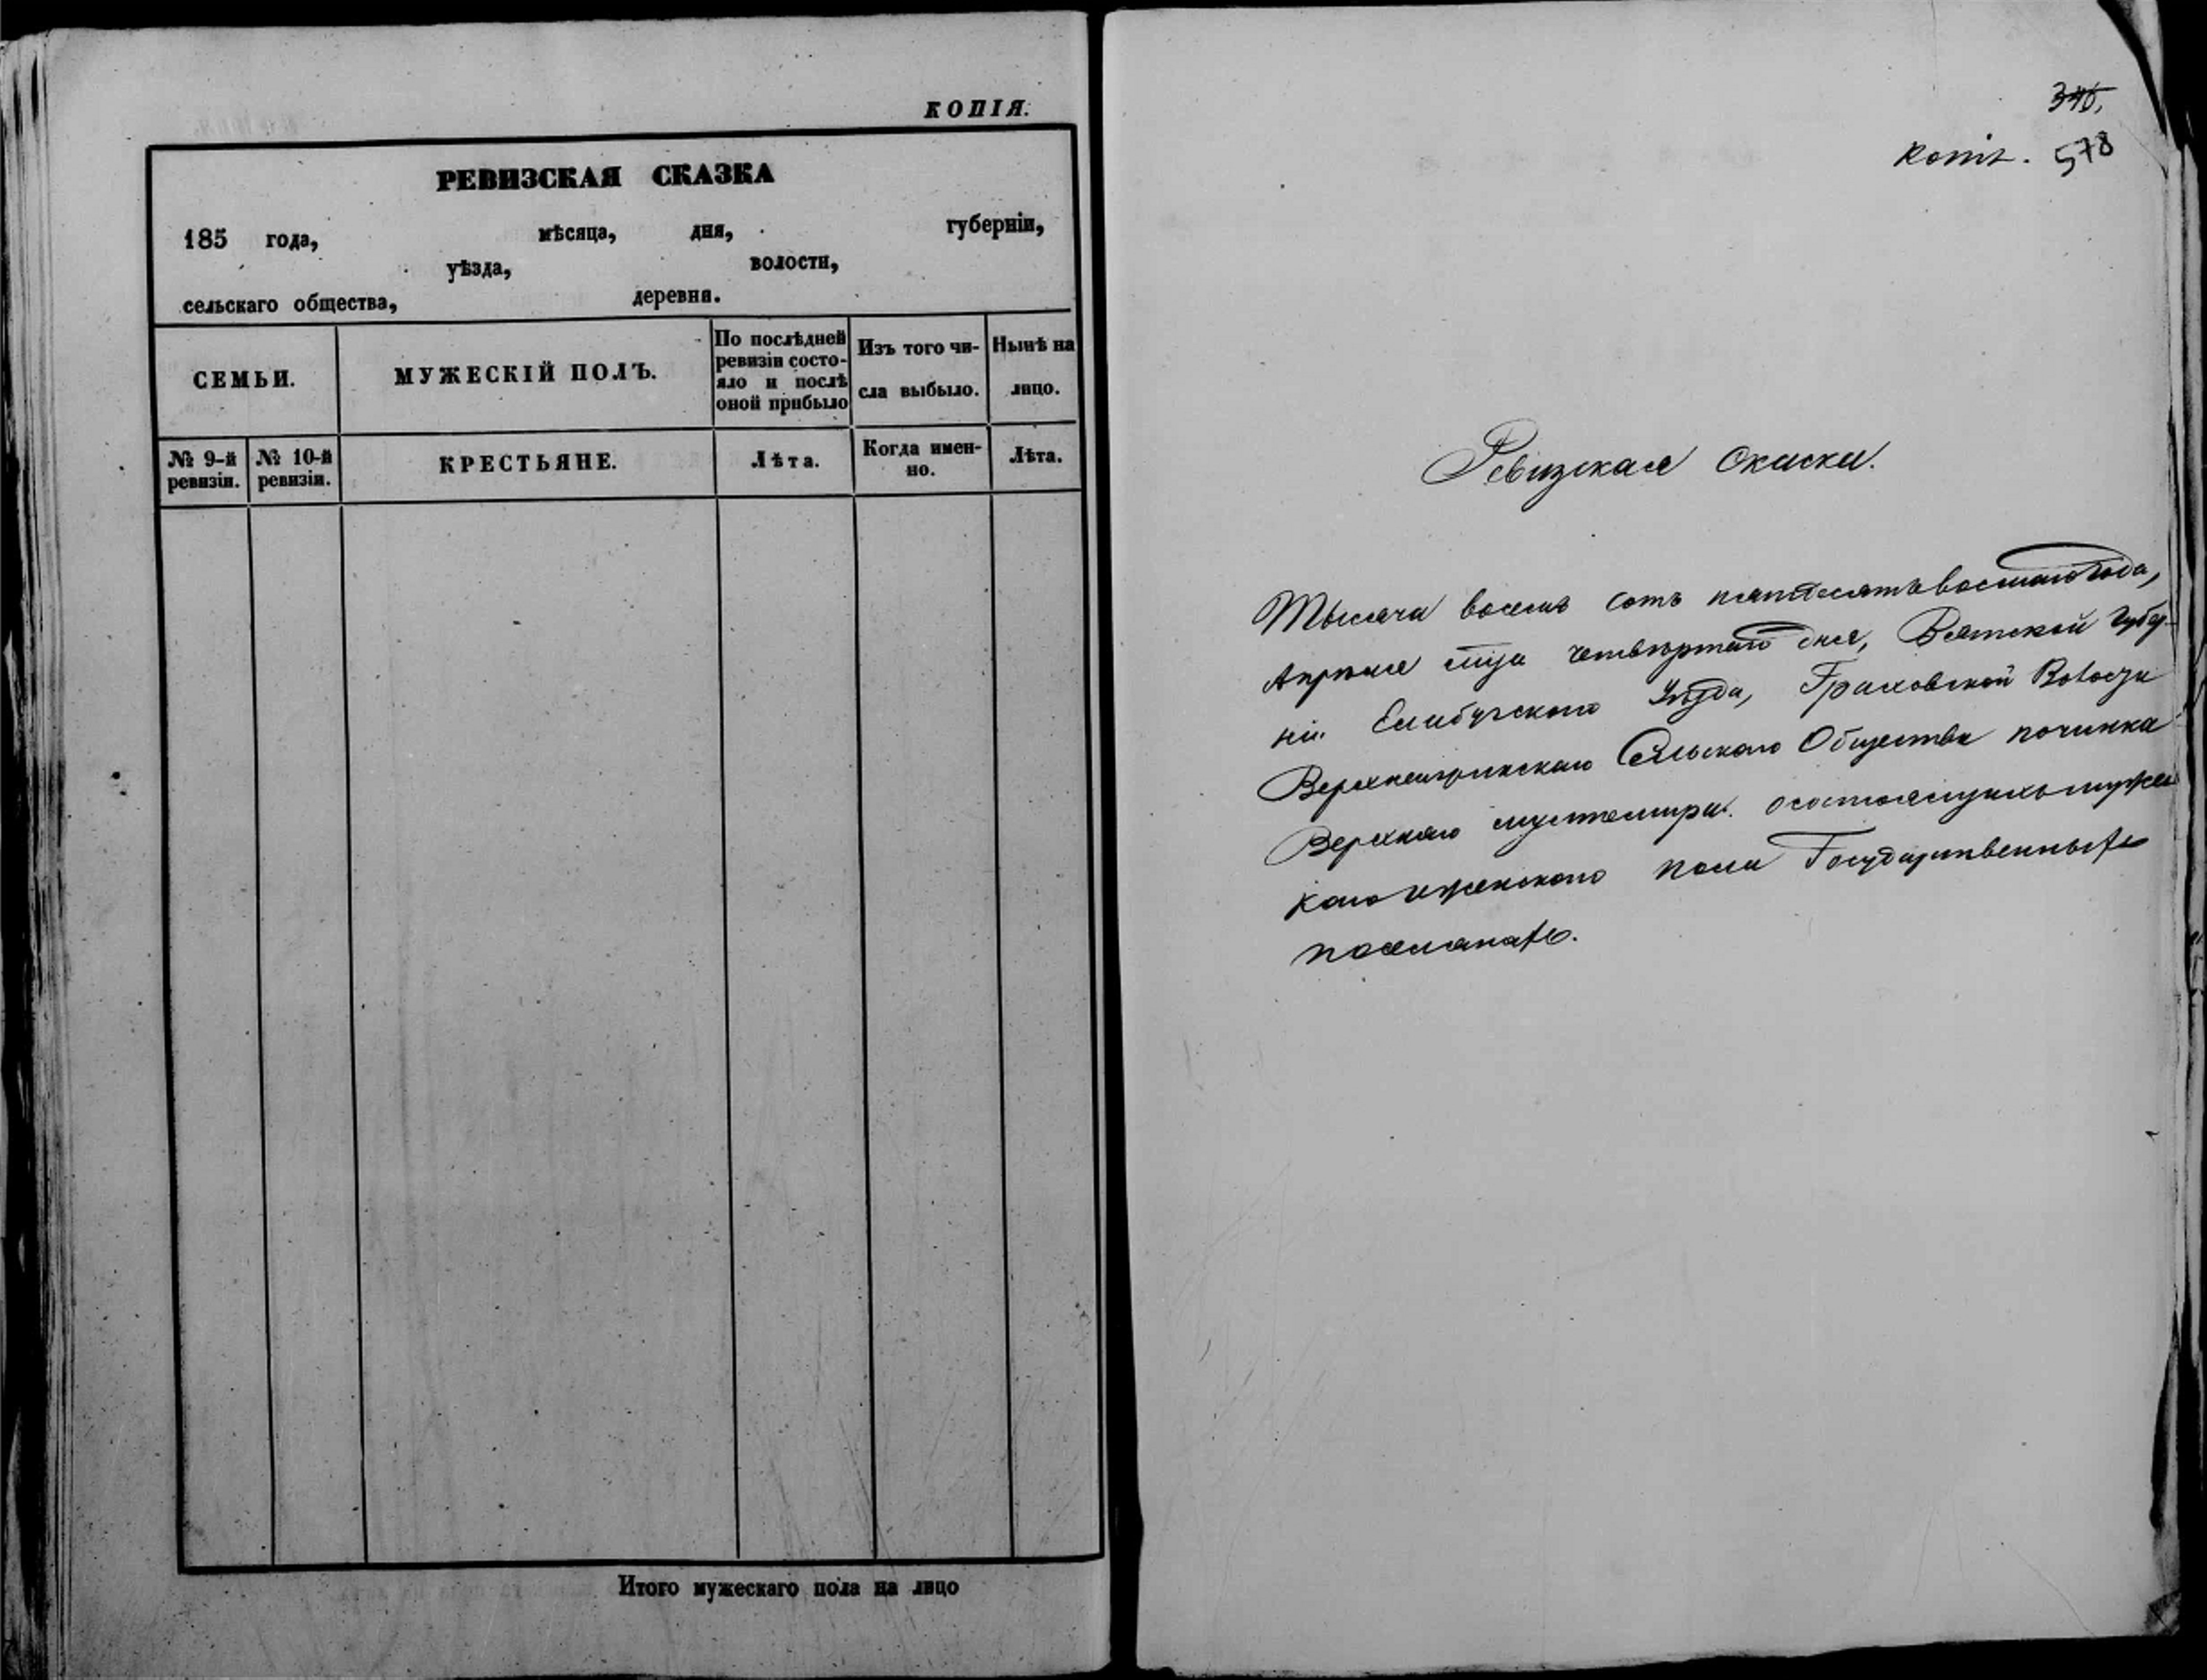 КОПІЯ.
РЕВИЗСКАЯ СКАЗКА
185 года, мѣсяца, дня, губерніи,
уѣзда, волости,
сельскаго общества, деревня.
СЕМЬИ.
МУЖЕСКІЙ ПОЛЪ.
По послѣдней
ревизіи состо-
яло и послѣ
оной прибыло
Изъ того чи-
сла выбыло.
Нынѣ на
лицо.
№ 9-й
ревизіи.
№ 10-й
ревизіи.
КРЕСТЬЯНЕ.
Лѣта.
Когда имен-
но.
Лѣта.
Итого мужескаго пола на лицо
345,
Копія. 578
Ревизская Скаска.
Тысяча восемь сотъ пятдесятъ восмаго Года,
Апрѣля мца четвѣртаго дня, Вятской Губер-
ніи. Елабугскаго Уѣзда, Граховской Волости
Сельскаго Общества починка
Верхняго о состоящихъ мужес
каго и женскаго пола Государственныхъ
поселянахъ.